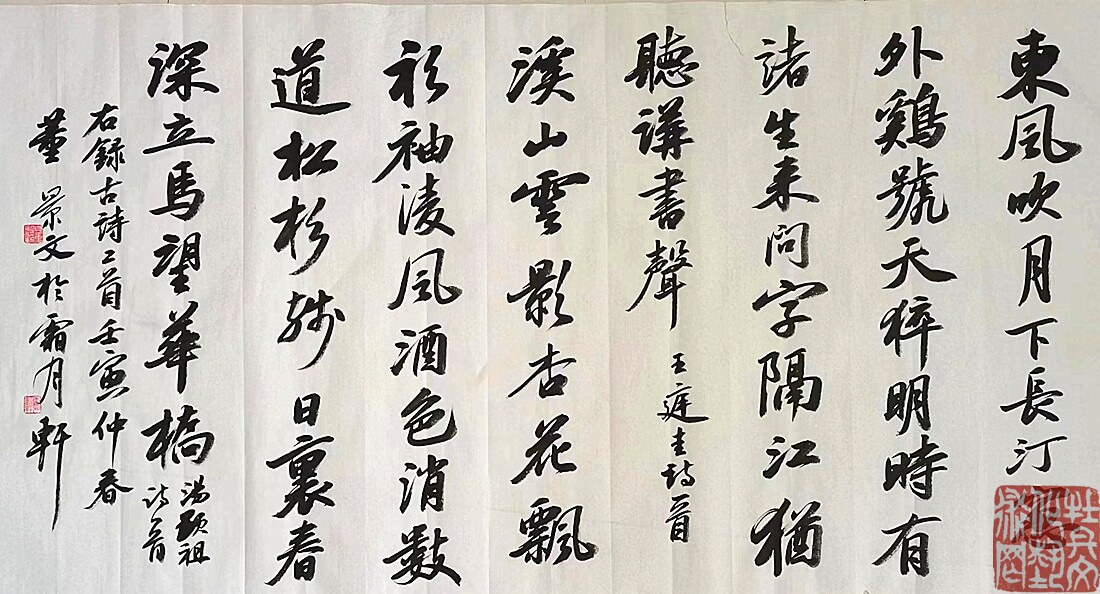 東風吹月下長汀
外鷄號天猝明時有
諸生来問字隔江猶
聽講書聲
王庭圭詩一首
溪山雲影杏花飄
衫袖淩風酒色消數
道松杉殘日裏春
深立馬望華橋
湯顕祖
詩一首
右録古詩二首壬寅仲春
董景文於霜月軒